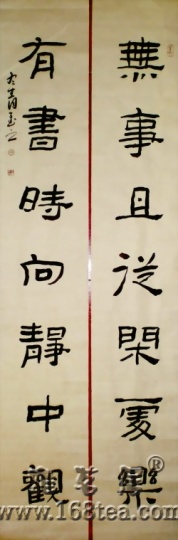 無事且從閑處樂
有書時向靜中觀
www.168tea.com